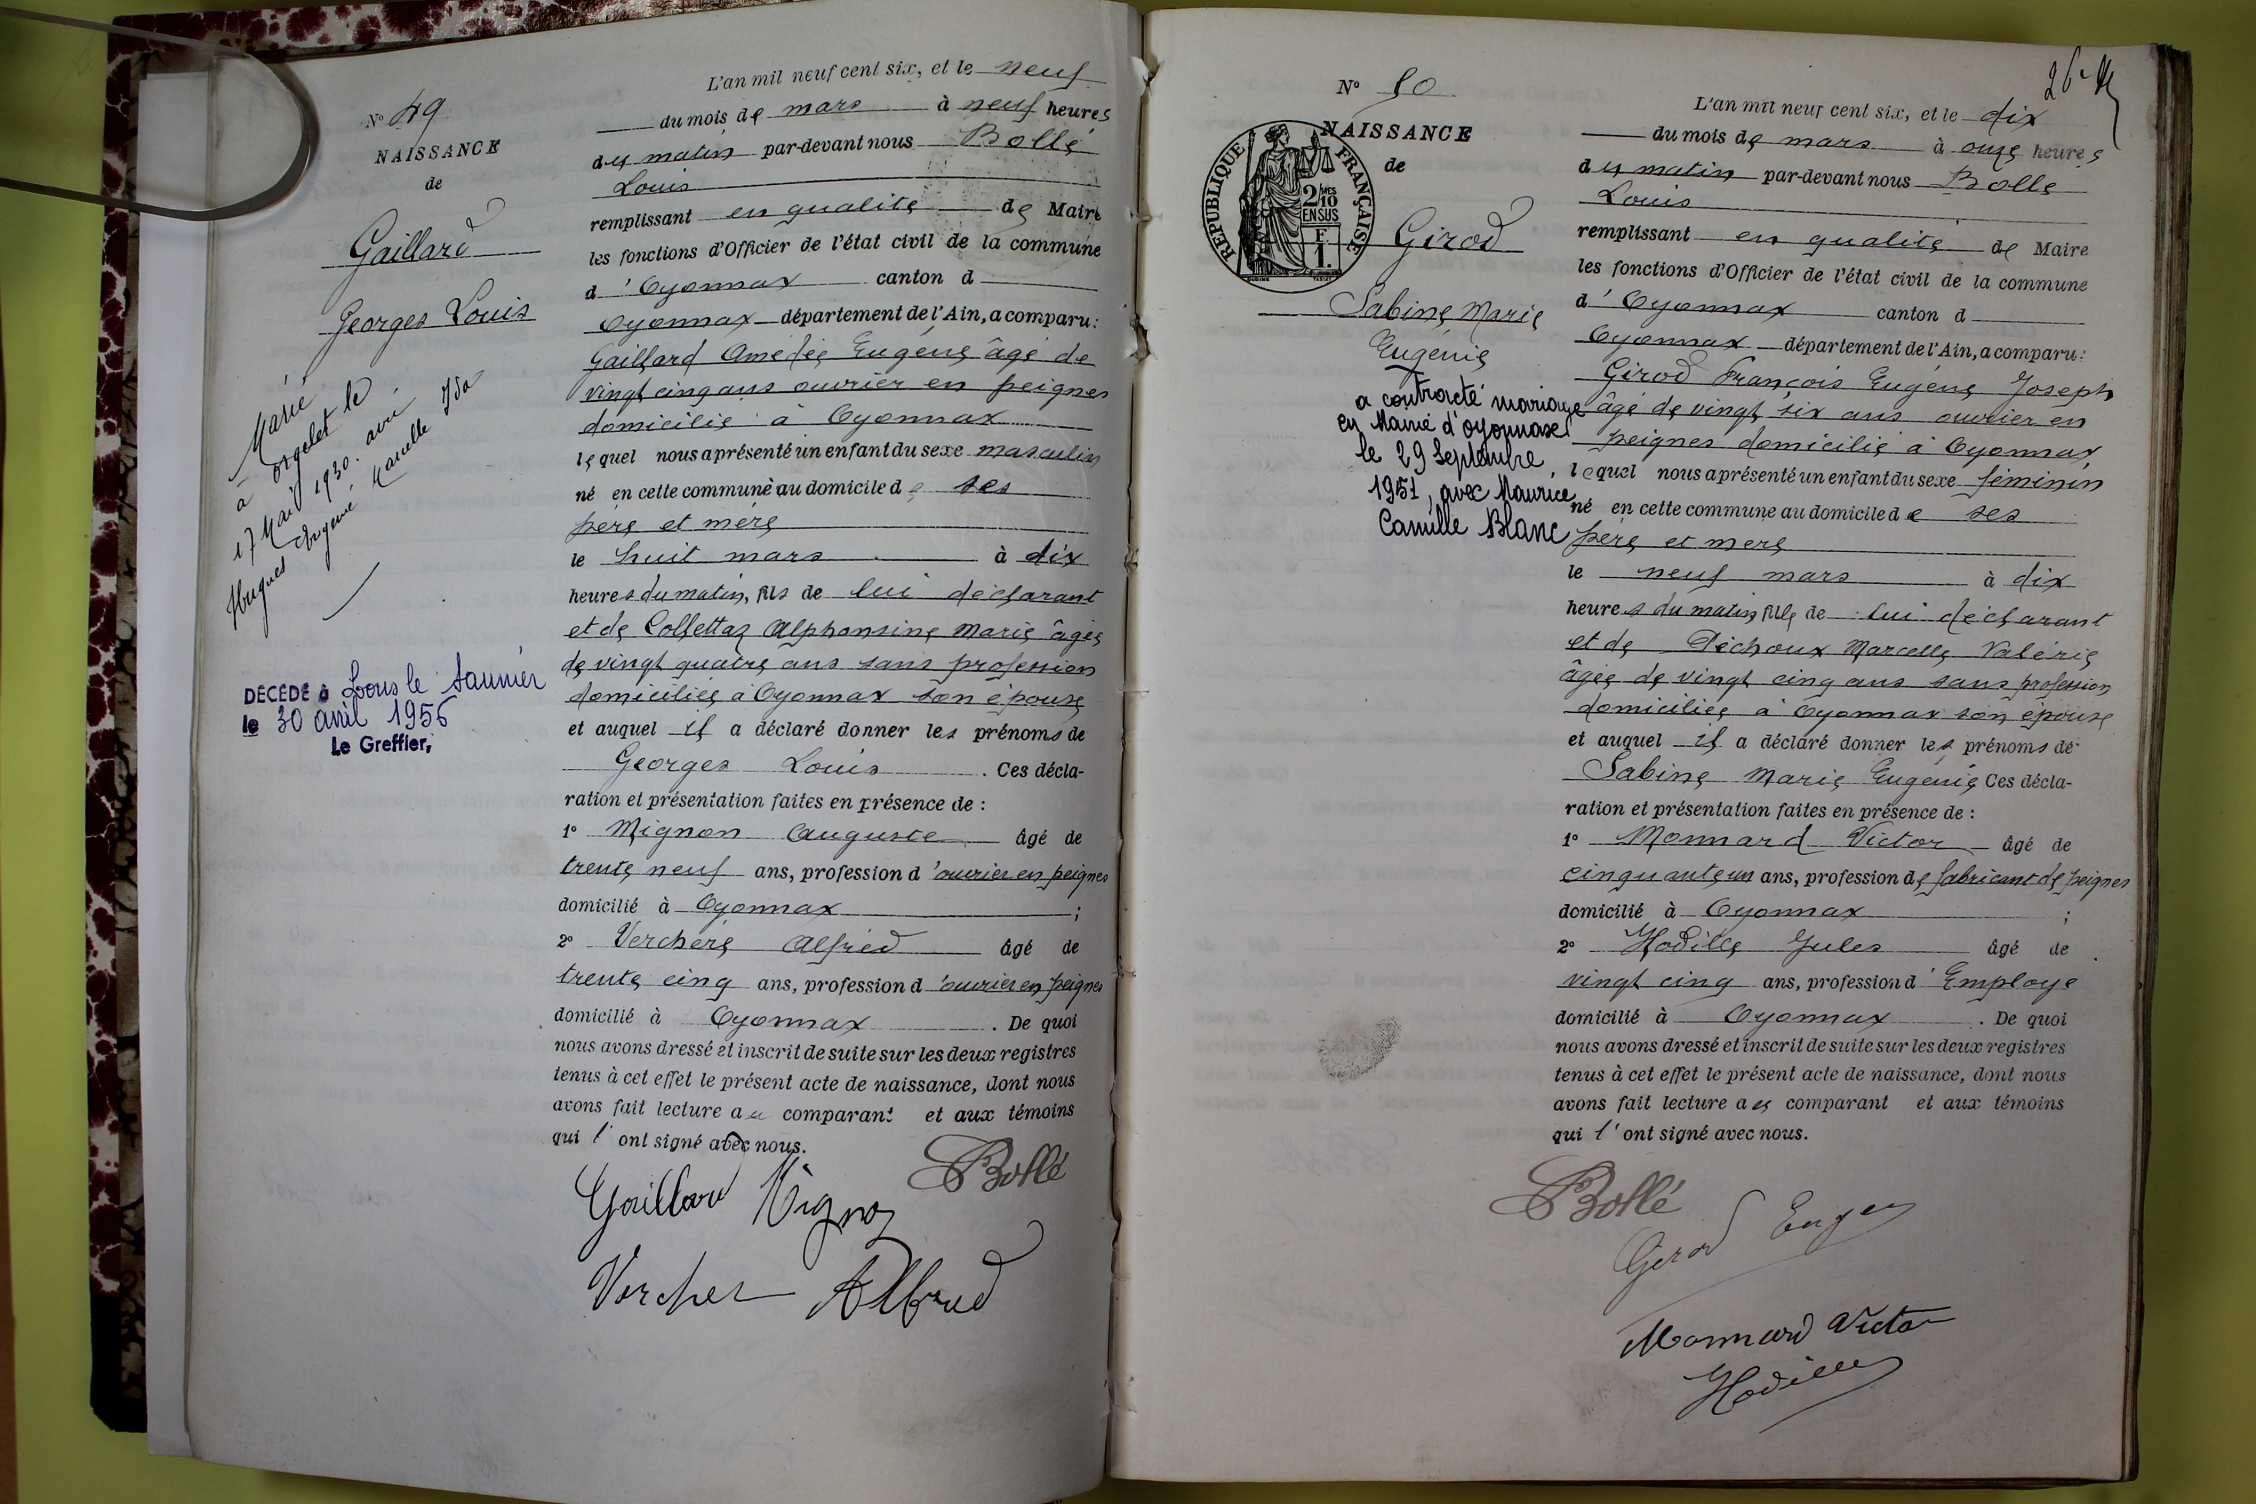 N° 49
NAISSANCE
de
Gaillard
Georges Louis
Marié
à Orgelet le
17 Mai 1930 avec
Hugues Eugénie Marcelle Ida
DÉCÉDÉ à Lons le Saunier
le 30 avril 1956
Le Greffier,
L'an mil neuf cent six, et le neuf
du mois de mars à neuf heures
du matin par-devant nous Bollé
Louis
remplissant en qualité de Maire
les fonctions d'Officier de l'état civil de la commune
d'Oyonnax canton d
Oyonnax département de l'Ain, a comparu:
Gaillard Amédée Eugène âgé de
vingt cinq ans ouvrier en peignes
domicilié à Oyonnax
lequel nous a présenté un enfant du sexe masculin
né en cette commune au domicile de ses
père et mère
le huit mars à dix
heures du matin, fils de lui déclarant
et de Collettaz Alphonsine Marie âgée
de vingt quatre ans sans profession
domiciliée à Oyonnax son épouse
et auquel il a déclaré donner les prénoms de
Georges Louis. Ces décla-
ration et présentation faites en présence de :
1° Mignon Auguste âgé de
trente neuf ans, profession d'ouvrier en peignes
domicilié à Oyonnax ;
2° Verchère Alfred âgé de
trente cinq ans, profession d'ouvrier en peignes
domicilié à Oyonnax. De quoi
nous avons dressé et inscrit de suite sur les deux registres
tenus à cet effet le présent acte de naissance, dont nous
avons fait lecture au comparant et aux témoins
qui l'ont signé avec nous.
Bollé
Gaillard Mignon
Vercher Alfred
26e
N° 50
NAISSANCE
de
RÉPUBLIQUE FRANÇAISE
2/10 MES
EN SUS
F.
1.
Girod
Sabine Marie
Eugénie
a contracté mariage
en Mairie d'Oyonnax
le 29 Septembre
1951, avec Maurice
Camille Blanc
L'an mil neuf cent six, et le dix
du mois de mars à onze heures
du matin par-devant nous Bollé
Louis
remplissant en qualité de Maire
les fonctions d'Officier de l'état civil de la commune
d'Oyonnax canton d
Oyonnax département de l'Ain, a comparu:
Girod François Eugène Joseph
âgé de vingt six ans ouvrier en
peignes domicilié à Oyonnax
lequel nous a présenté un enfant du sexe féminin
né en cette commune au domicile de ses
père et mère
le neuf mars à dix
heures du matin, fille de lui déclarant
et de Déchoux Marcelle Valérie
âgée de vingt cinq ans sans profession
domiciliée à Oyonnax son épouse
et auquel il a déclaré donner les prénoms de
Sabine Marie Eugénie Ces décla-
ration et présentation faites en présence de :
1° Monnard Victor âgé de
cinquante un ans, profession de fabricant de peignes
domicilié à Oyonnax ;
2° Hodille Jules âgé de
vingt cinq ans, profession d'Employé
domicilié à Oyonnax. De quoi
nous avons dressé et inscrit de suite sur les deux registres
tenus à cet effet le présent acte de naissance, dont nous
avons fait lecture au comparant et aux témoins
qui l'ont signé avec nous.
Bollé
Girod Eugen
Monnard Victor
Hodille